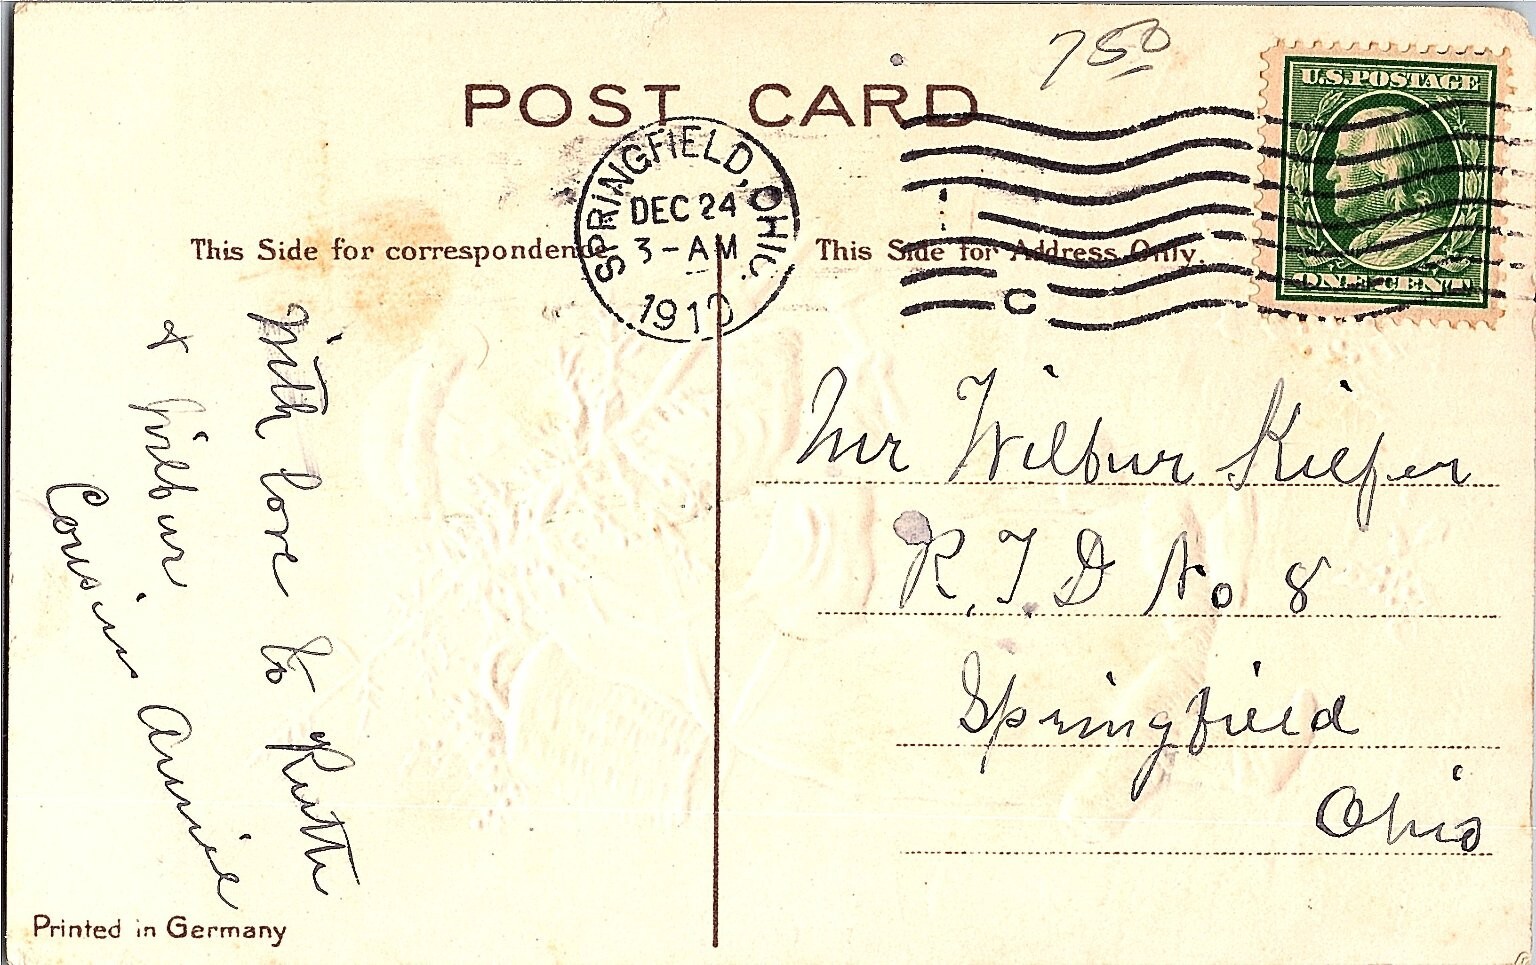 7 50
POST CARD
SPRINGFIELD, OHIO.
DEC 24
3-AM
1910
C
U.S. POSTAGE
ONE CENT
This Side for correspondence
This Side for Address Only.
With love to Ruth
& Wilbur
Cousin Annie
Mr Wilbur Kiefer
R.F.D No 8
Springfield
Ohio
Printed in Germany